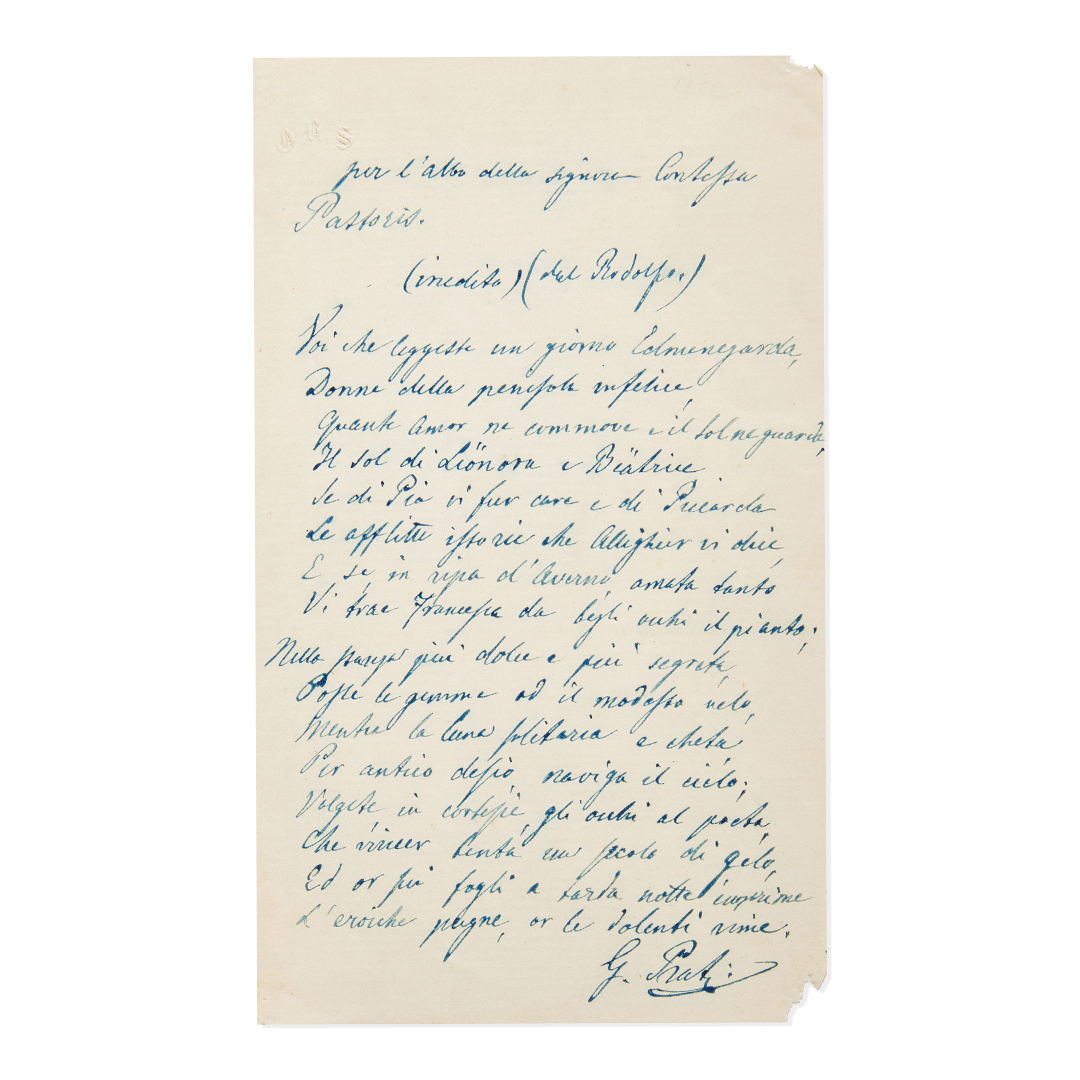 per l'albo della signora Contessa
Pastoris.
(inedito) (dal Rodolfo.)
Voi che leggeste un giorno Edmenegarda,
Donne della penisola infelice,
Quante amor ne commove e il sol ne guarda,
Il sol di Lïonora e Bëatrice
Se di Pia vi fur care e di Piccarda
Le afflitte istorie che Allighier vi dice,
E, se, in ripa d'Averno, amata tanto
Vi trae Francesca da begli occhi il pianto;
Nella stanza più dolce e più segreta,
Poste le gemme ed il modesto velo,
Mentre la luna solitaria e cheta
Per antico desio, naviga il cielo;
Volgete in cortesie, gli occhi al poeta,
Che vincer tenta un secolo di gelo,
Ed or sui fogli a tarda notte imprime
L'eroiche pugne, or le dolenti rime.
G. Prati: